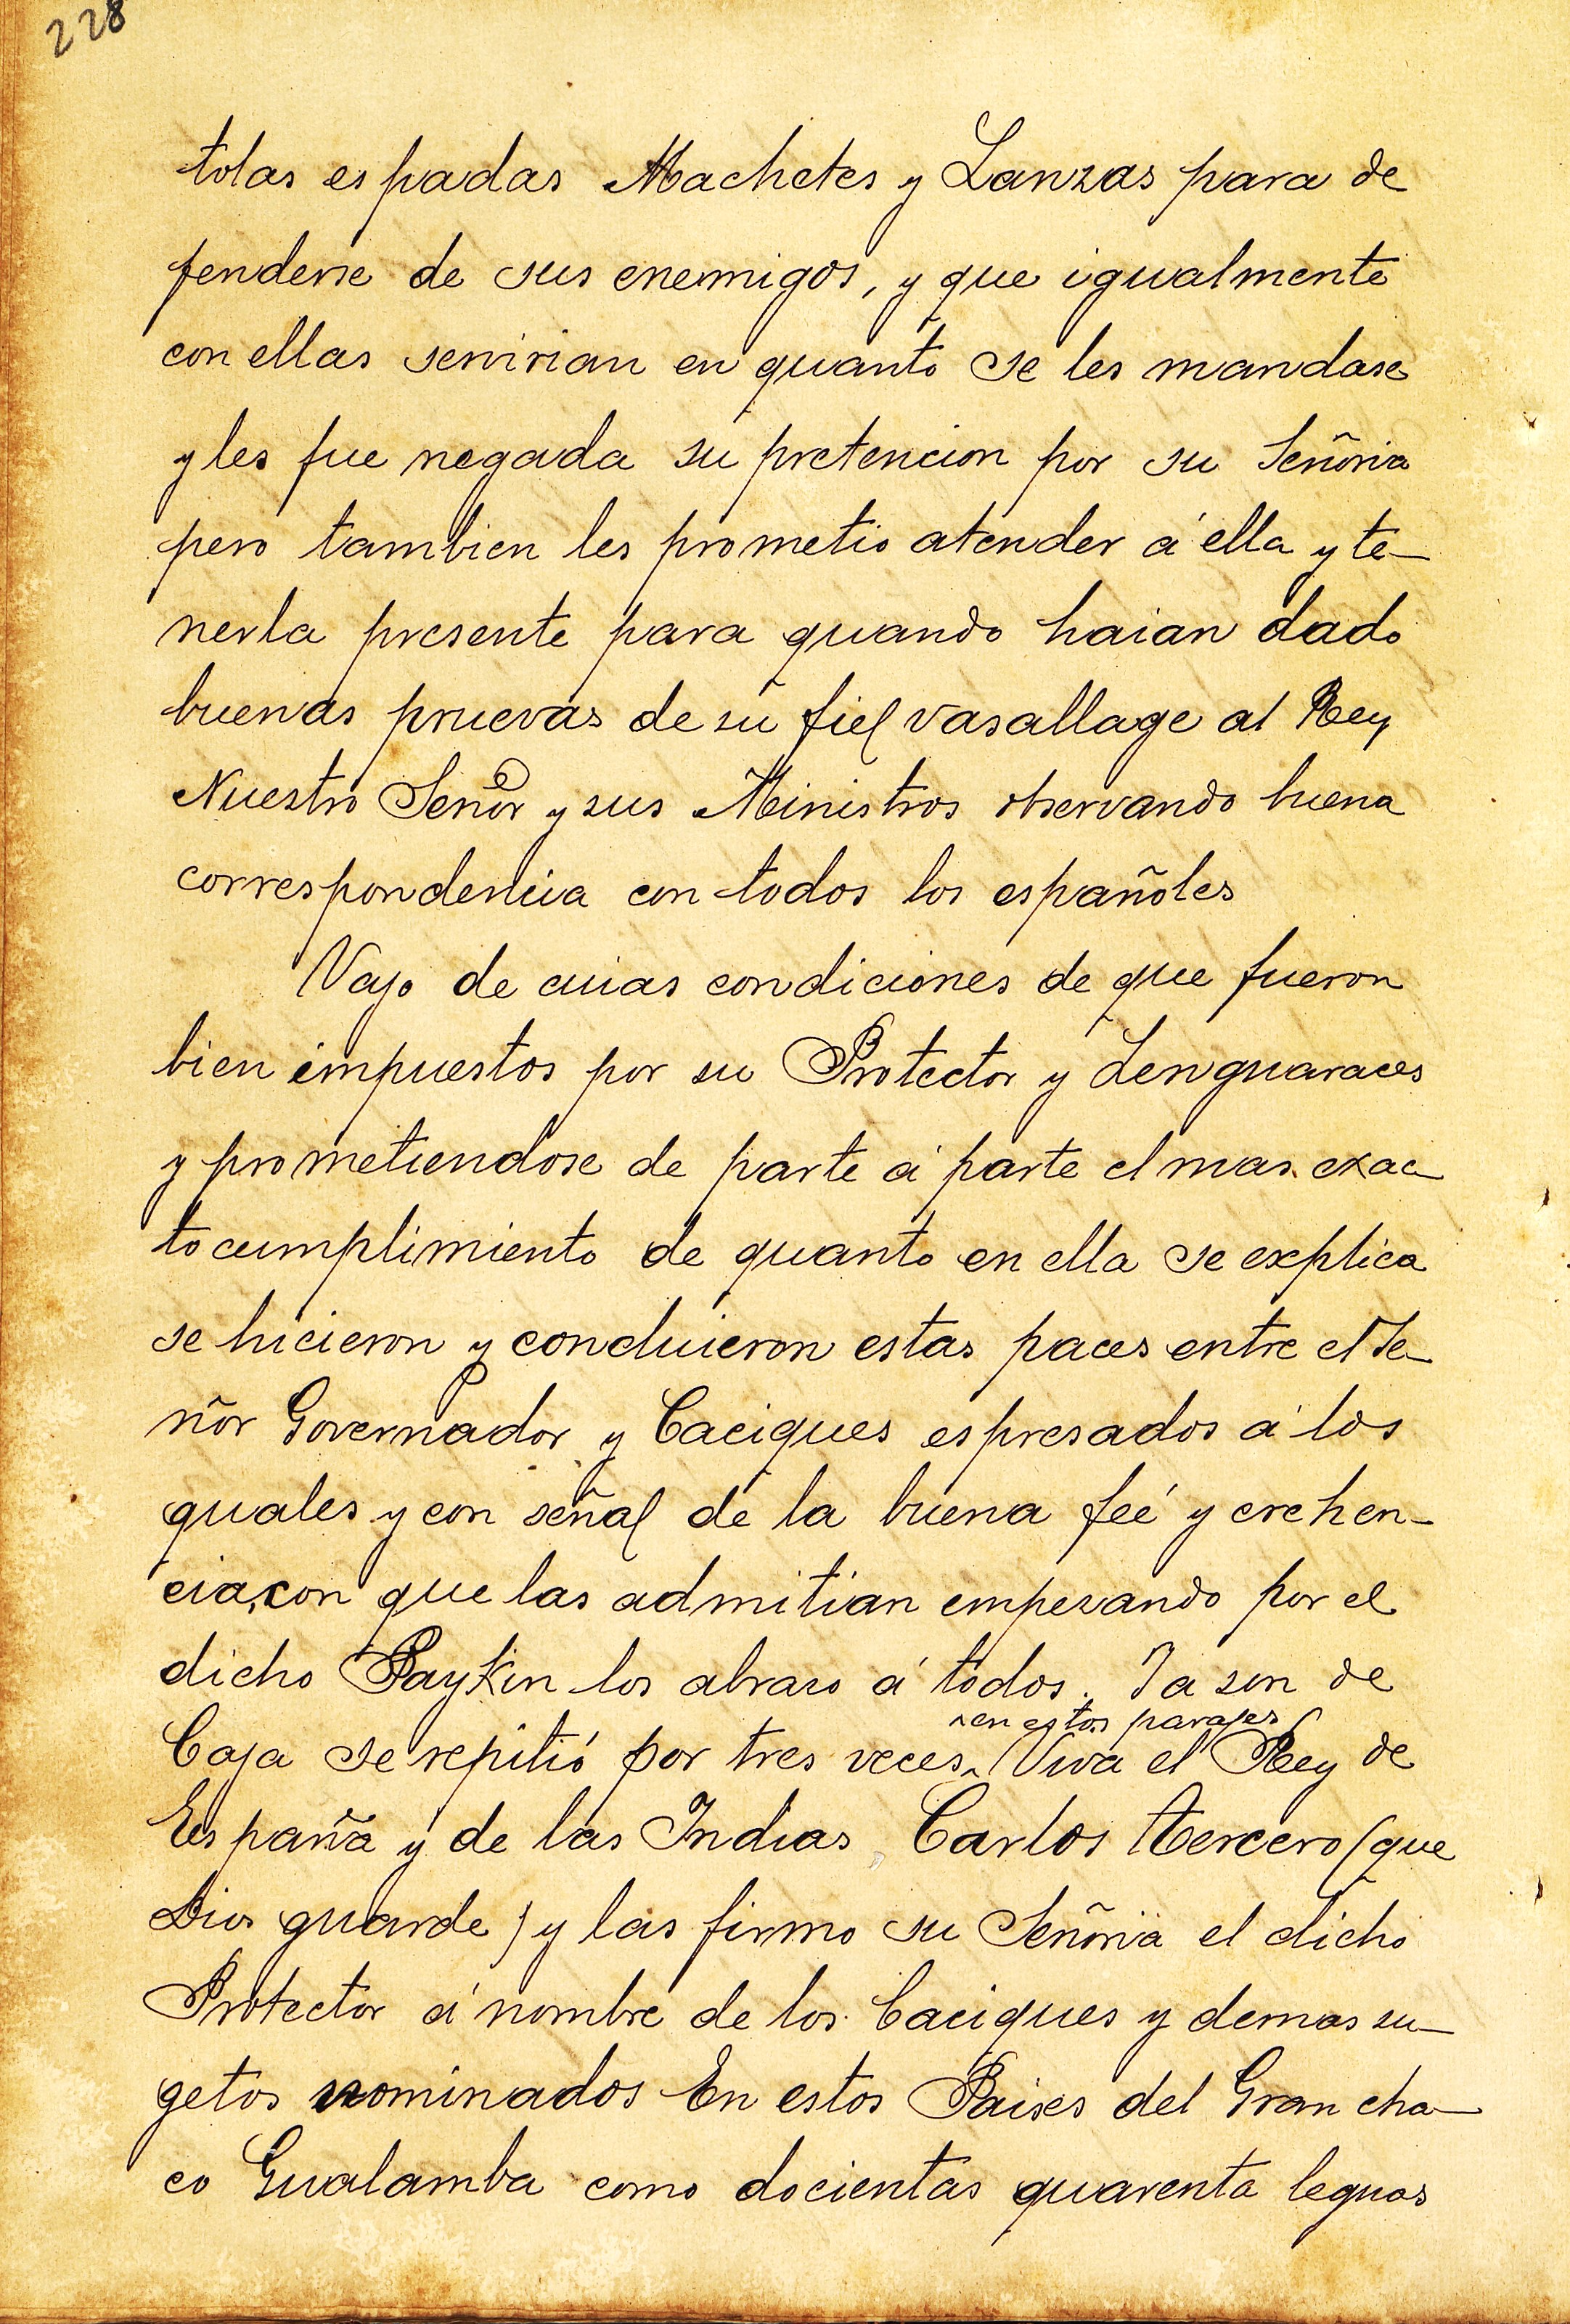 228
tolas espadas Machetes y Lanzas para de
fenderse de sus enemigos, y que igualmente
con ellas servirian en quanto se les mandase
y les fue negada su pretencion por su Señoria
pero tambien les prometio atender á ella y te-
nerla presente para quando haian dado
buenas pruevas de su fiel vasallage al Rey
Nuestro Señor y sus Ministros observando buena
correspondencia con todos los españoles
Vajo de cuias condiciones de que fueron
bien impuestos por su Protector y Lenguaraces
y prometiendose de parte á parte el mas exac-
to cumplimiento de quanto en ella se explica
se hicieron y concluieron estas paces entre el Se-
ñor Governador y Caciques espresados á los
quales y con señal de la buena feé y crehen-
cia, con que las admitian empezando por el
dicho Paykin los abrazo á todos. Ja son de
en estos parajes
Caja se repitió por tres veces Viva el Rey de
España y de las Indias Carlos tercero (que
Dios guarde) y las firmo su Señoria el dicho
Protector á nombre de los Caciques y demas su-
getos nominados En estos Paises del Gran cha-
co Gualamba como docientas quarenta leguas